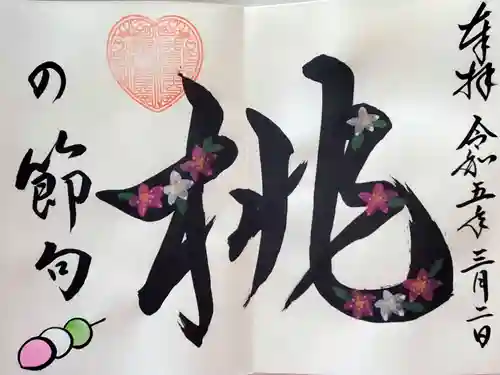 奉拝
令和五年
三月二日
桃
の節句